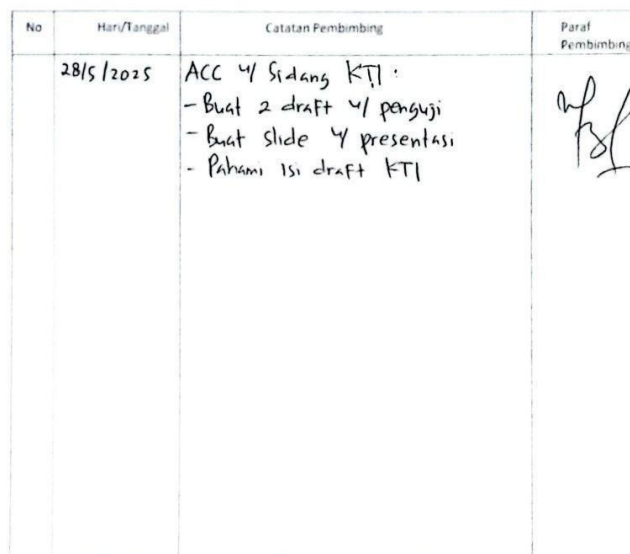 No Hari/Tanggal Catatan Pembimbing Paraf
Pembimbing
28/5/2025 ACC u/ Sidang KTI :
- Buat 2 draft u/ penguji
- Buat slide u/ presentasi
- Pahami isi draft KTI